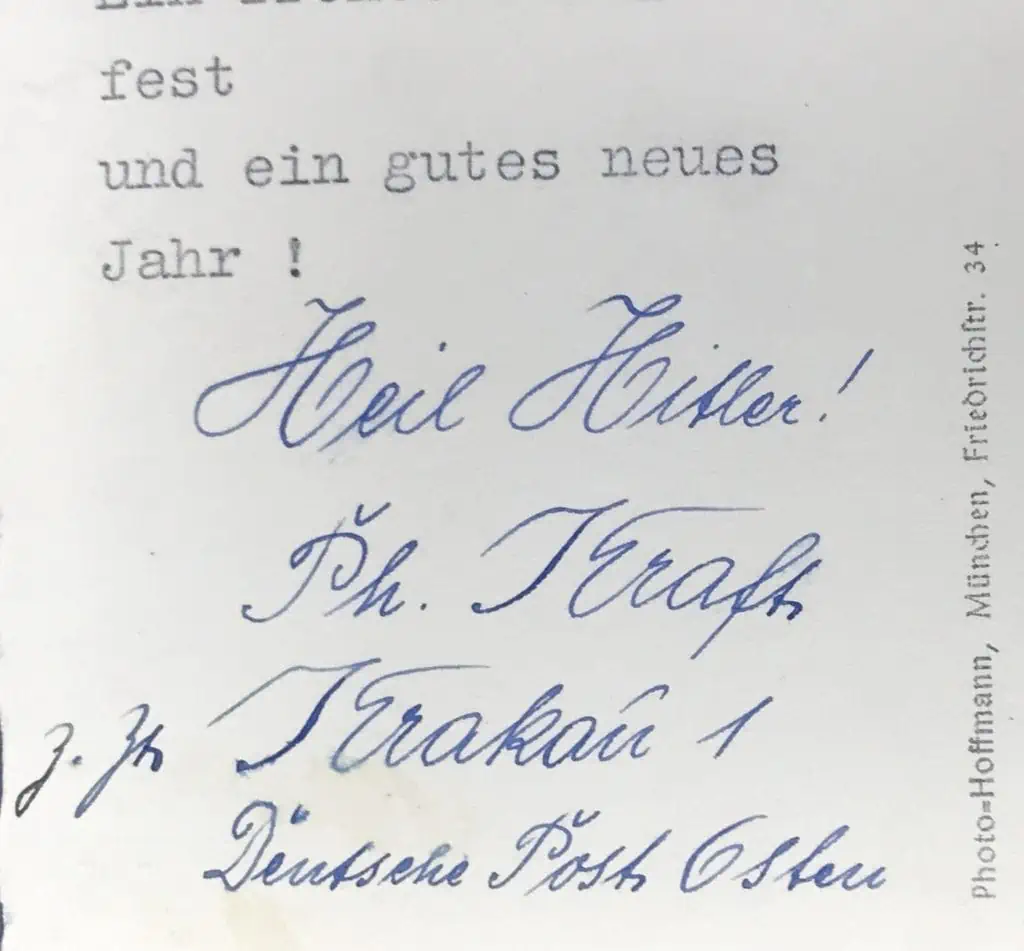 fest
und ein gutes neues
Jahr !
Heil Hitler!
Ph. Kraft
z. Zt. Krakau 1
Deutsche Post Osten
Photo=Hoffmann, München, Friedrichstr. 34